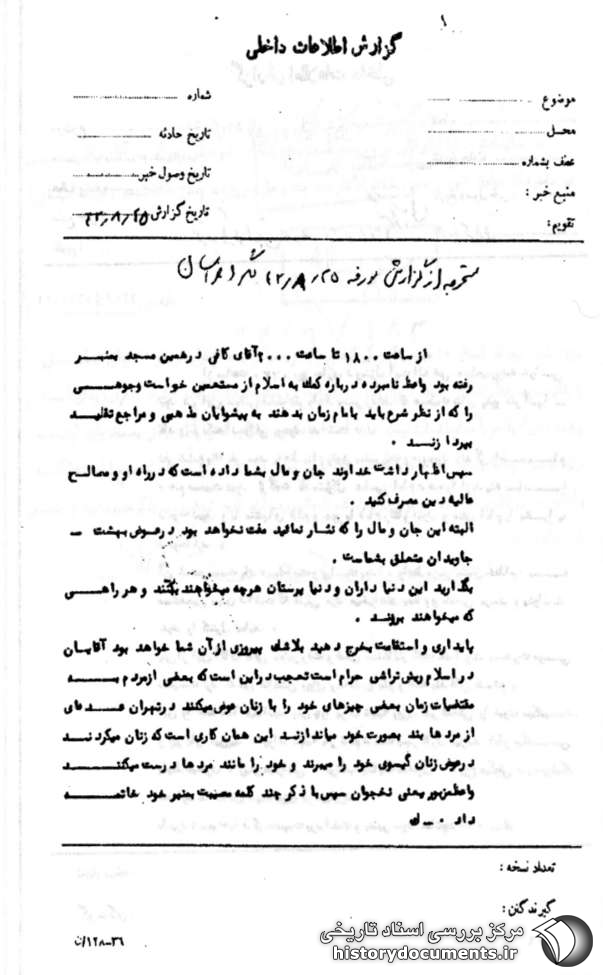 ۱
گزارش اطلاعات داخلی
موضوع
شماره
محل
تاریخ حادثه
عطف بشماره
تاریخ وصول خبر
منبع خبر :
تاریخ گزارش ۴۳٫۸٫۲۵
تقویم :
مستخرجه از گزارش مورخه ۴۳٫۸٫۲۵
از ساعت ۱۸۰۰ تا ساعت ۲۰۰۰ آقای کافی در همین مسجد بمنبر
رفته بود واعظ نامبرده درباره کمک به اسلام از مستمعین خواست وجوهی
را که از نظر شرع باید بامام زمان بدهند به پیشوایان مذهبی و مراجع تقلید
بپردازند .
سپس اظهار داشت خداوند جان و مال بشما داده است که در راه او و مصالح
عالیه دین مصرف کنید .
البته این جان و مال را که نثار نمائید مفت نخواهد بود در عوض بهشت –
جاویدان متعلق بشماست .
بگذارید این دنیا داران و دنیا پرستان هرچه میخواهند بکنند و هر راهی
که میخواهند بروند .
پایداری و استقامت بخرج دهید بلاشک پیروزی از آن شما خواهد بود آقایان
در اسلام ریش تراشی حرام است تعجب در این است که بعضی از مردم به
مقتضیات زمان بعضی چیزهای خود را با زنان عوض میکنند در تهران عده ای
از مردها بند بصورت خود میاندازند این همان کاری است که زنان میکردند
در عوض زنان گیسوی خود را میبرند و خود را مانند مردها درست میکنند
واعظ مزبور یعنی سپس با ذکر چند کلمه مصیبت بمنبر خود خاتمه
داد .
تعداد نسخه :
گیرندگان :
۱۲۸-۳۶/ن
مرکز بررسی اسناد تاریخی
historydocuments.ir